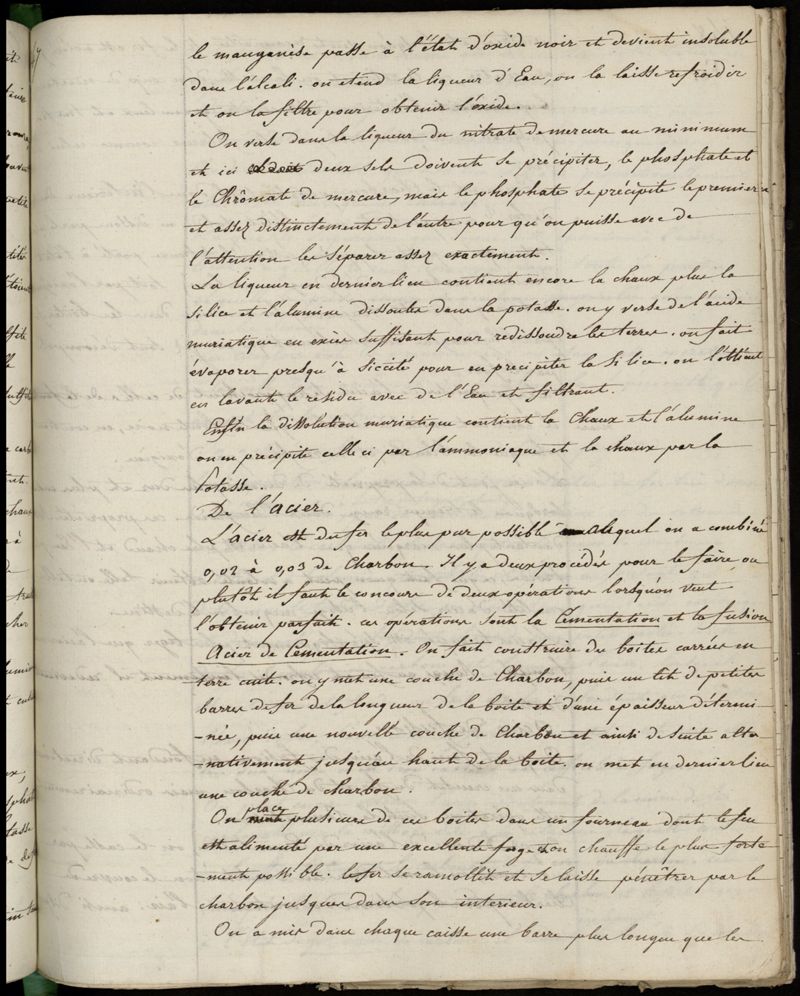 le manganèse passe à l'état d'oxide noir et devient insoluble
dans l'alcali. on etend la liqueur d'Eau, on la laisse refroidir
et on la filtre pour obtenir l'oxide.
On verse dans la liqueur du nitrate de mercure au minimum
et ici deux sels doivent se précipiter, le phosphate et
le Chrômate de mercure, mais le phosphate se précipite le premier
et assez distinctement de l'autre pour qu'on puisse avec de
l'attention les séparer assez exactement.
La liqueur en dernier lieu contient encore la chaux plus la
silice et l'alumine dissoutes dans la potasse. on y verse de l'acide
muriatique en excès suffisant pour redissoudre les terres. on fait
évaporer presqu'à siccité pour en precipiter la silice. on l'obtient
en lavant le residu avec de l'Eau et filtrant.
Enfin la dissolution muriatique contient la Chaux et l'alumine
on en précipite celle ci par l'ammoniaque et la chaux par la
Potasse.
De l'acier.
L'acier est du fer le plus pur possible auquel on a combiné
0,02 à 0,03 de Charbon. Il y a deux procédés pour le faire ou
plutôt il faut le concours de deux opérations lorsqu'on veut
l'obtenir parfait. ces opérations sont la Cémentation et la fusion
Acier de Cementation. On fait construire des boites carrées en
terre cuite. on y met une couche de Charbon, puis un lit de petites
barres de fer de la longueur de la boite et d'une épaisseur détermi-
-née, puis une nouvelle couche de Charbon et ainsi de suite alte
-nativement jusqu'au haut de la boite. on met en dernier lieu
une couche de charbon.
On place plusieurs de ces boites dans un fourneau dont le feu
est alimenté par une excellente forge on chauffe le plus forte
-ment possible. le fer se ramollit et se laisse pénétrer par le
charbon jusques dans son interieur.
On a mis dans chaque caisse une barre plus longue que les